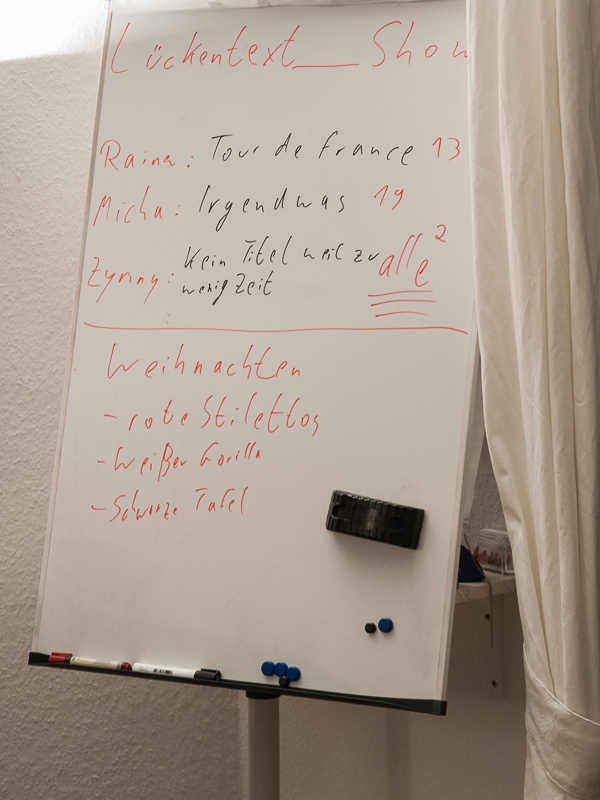 Lückentext___Show
Raina: Tour de France 13
Micha: Irgendwas 19
Zymny: Kein Titel weil zu wenig Zeit alle²
Weihnachten
- rote Stilettos
- Weißer Gorilla
- Schwarze Tafel